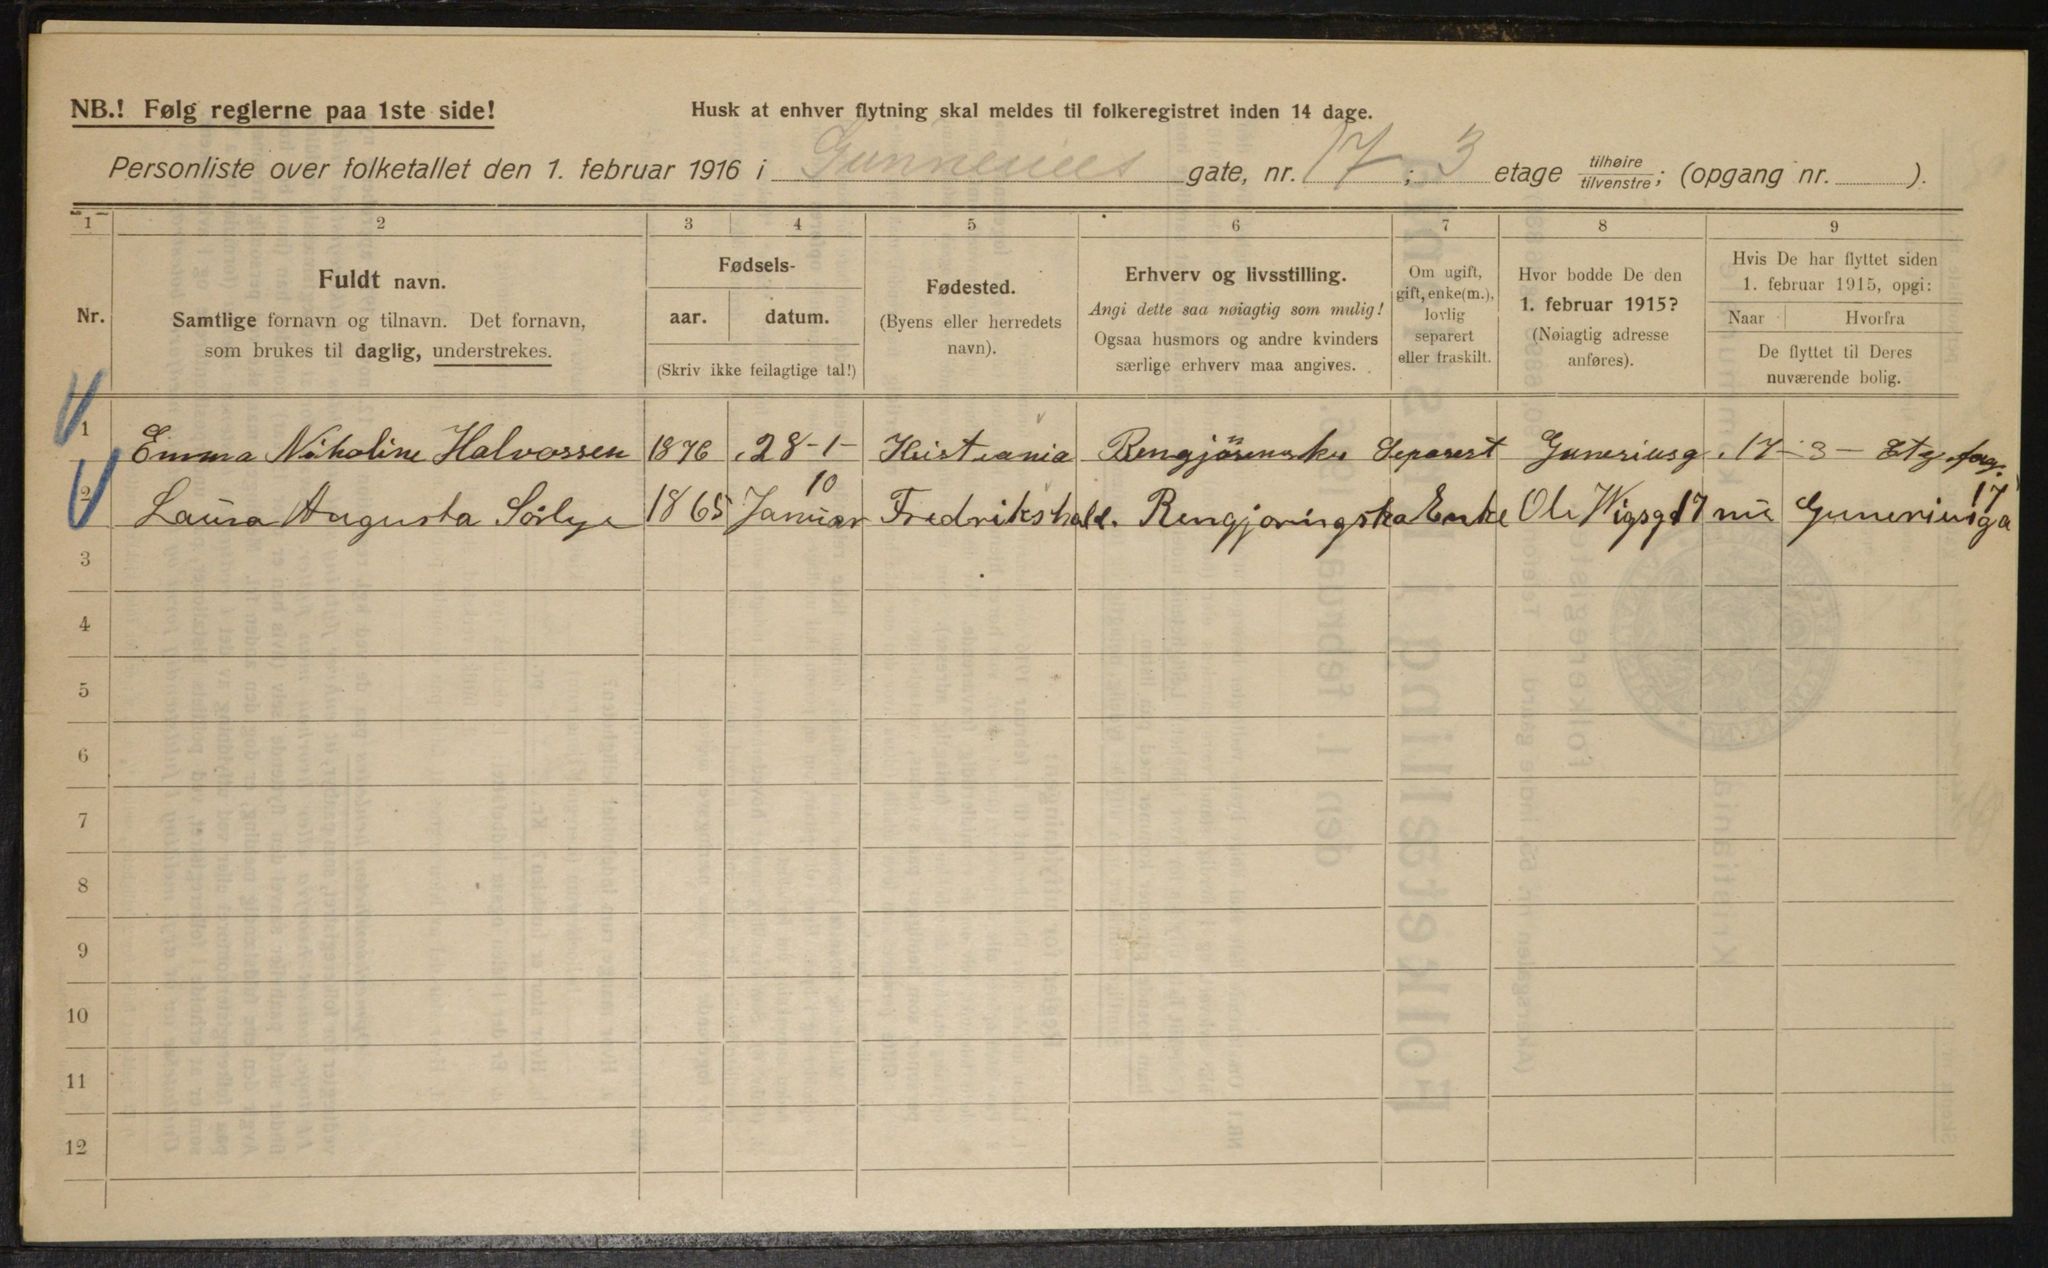 NB.! Følg reglerne paa 1ste side!
Husk at enhver flytning skal meldes til folkeregistret inden 14 dage.
Personliste over folketallet den 1. februar 1916 i Gunnerius gate, nr. 17; 3 etage tilhøire tilvenstre; (opgang nr. ).
1 2 3 4 5 6 7 8 9
Nr.
Fuldt navn.
Samtlige fornavn og tilnavn. Det fornavn,
som brukes til daglig, understrekes.
Fødsels-
aar. datum.
(Skriv ikke feilagtige tal!)
Fødested.
(Byens eller herredets
navn).
Erhverv og livsstilling.
Angi dette saa nøiagtig som mulig!
Ogsaa husmors og andre kvinders
særlige erhverv maa angives.
Om ugift,
gift, enke(m.),
lovlig
separert
eller fraskilt.
Hvor bodde De den
1. februar 1915?
(Nøiagtig adresse
anføres).
Hvis De har flyttet siden
1. februar 1915, opgi:
Naar Hvorfra
De flyttet til Deres
nuværende bolig.
1 Emma Nikoline Halvorsen 1876 28-1- Kristiania Separert Guneriusg. 17-3- Etg.
2 Laura Augusta Sörlye 1865 10 Januar Fredrikshald. Rengjøringska Enke Ole Wigsgd 17 nu Guneriusga 17
3
4
5
6
7
8
9
10
11
12